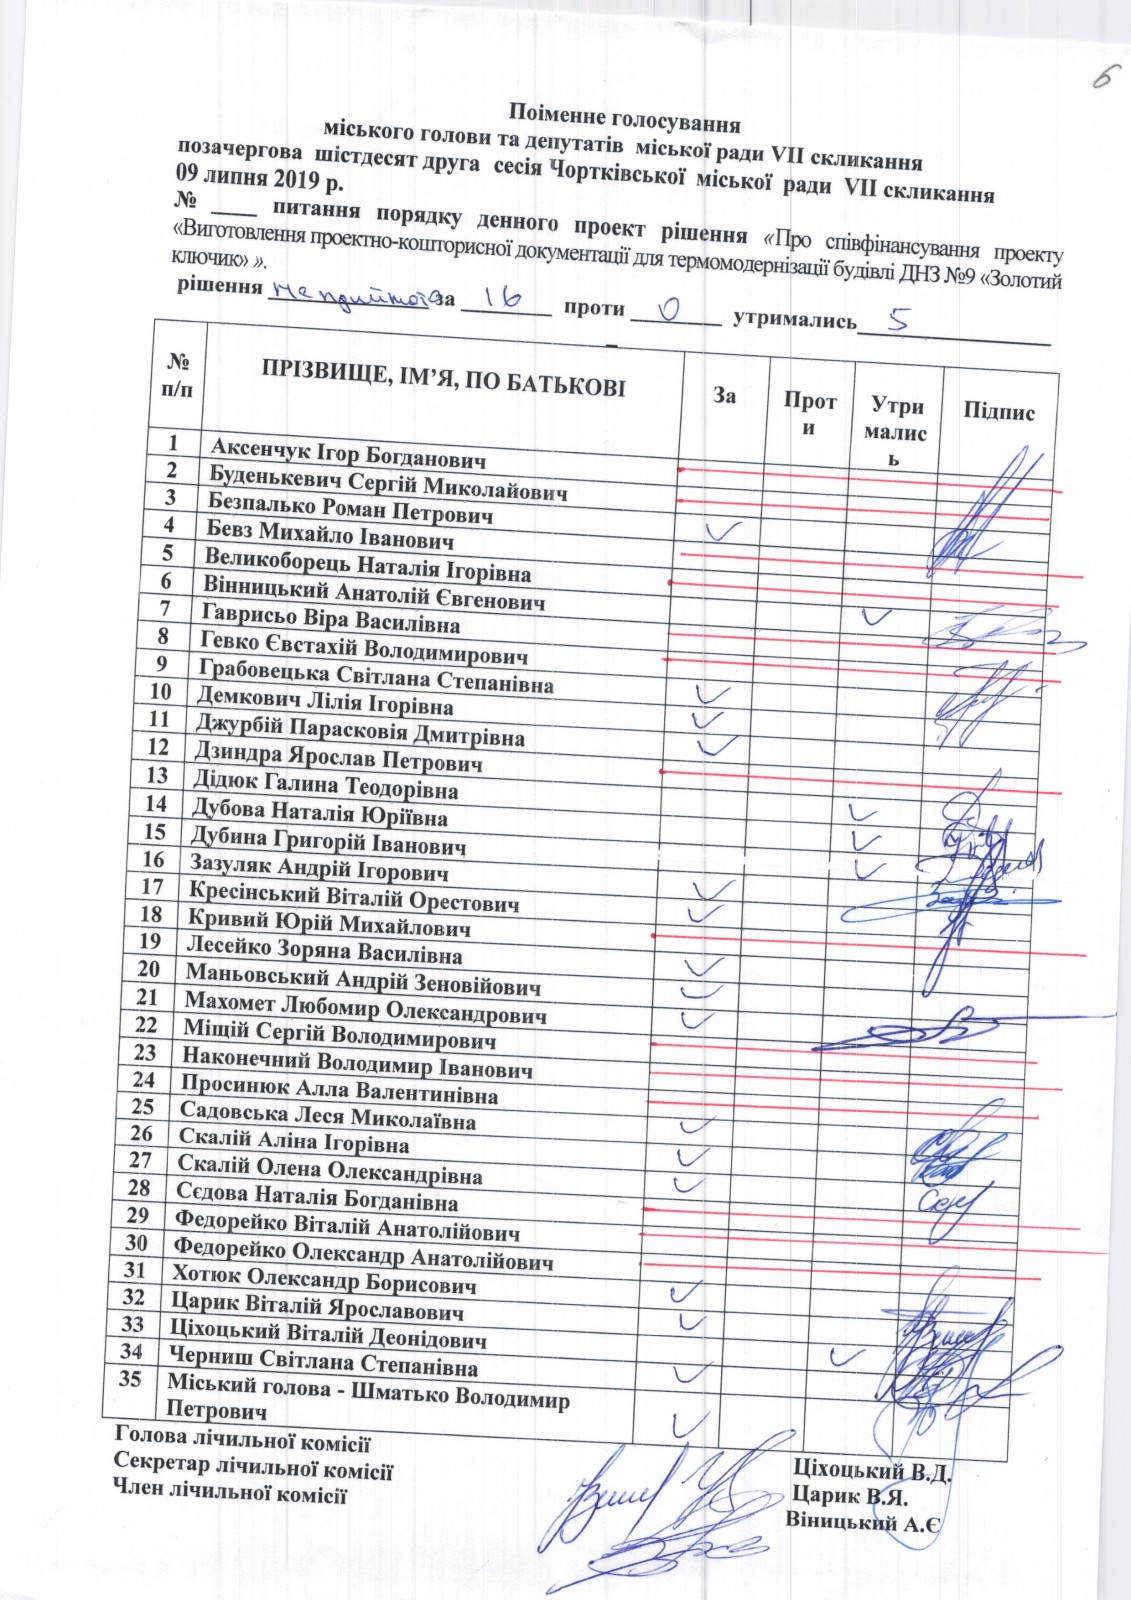 6
Поіменне голосування
міського голови та депутатів міської ради VII скликання
позачергова шістдесят друга сесія Чортківської міської ради VII скликання
09 липня 2019 р.
№ ____ питання порядку денного проект рішення «Про співфінансування проекту
«Виготовлення проектно-кошторисної документації для термомодернізації будівлі ДНЗ №9 «Золотий
ключик» ».
рішення не прийнято за 16 проти 0 утримались 5
№ п/п ПРІЗВИЩЕ, ІМ’Я, ПО БАТЬКОВІ За Проти Утримались Підпис
1 Аксенчук Ігор Богданович
2 Буденькевич Сергій Миколайович
3 Безпалько Роман Петрович
4 Бевз Михайло Іванович
5 Великоборець Наталія Ігорівна
6 Вінницький Анатолій Євгенович
7 Гаврисьо Віра Василівна
8 Гевко Євстахій Володимирович
9 Грабовецька Світлана Степанівна
10 Демкович Лілія Ігорівна
11 Джурбій Парасковія Дмитрівна
12 Дзиндра Ярослав Петрович
13 Дідюк Галина Теодорівна
14 Дубова Наталія Юріївна
15 Дубина Григорій Іванович
16 Зазуляк Андрій Ігорович
17 Кресінський Віталій Орестович
18 Кривий Юрій Михайлович
19 Лесейко Зоряна Василівна
20 Маньовський Андрій Зеновійович
21 Махомет Любомир Олександрович
22 Міщій Сергій Володимирович
23 Наконечний Володимир Іванович
24 Просинюк Алла Валентинівна
25 Садовська Леся Миколаївна
26 Скалій Аліна Ігорівна
27 Скалій Олена Олександрівна
28 Сєдова Наталія Богданівна
29 Федорейко Віталій Анатолійович
30 Федорейко Олександр Анатолійович
31 Хотюк Олександр Борисович
32 Царик Віталій Ярославович
33 Ціхоцький Віталій Деонідович
34 Черниш Світлана Степанівна
35 Міський голова - Шматько Володимир
Петрович
Голова лічильної комісії Ціхоцький В.Д.
Секретар лічильної комісії Царик В.Я.
Член лічильної комісії Віницький А.Є